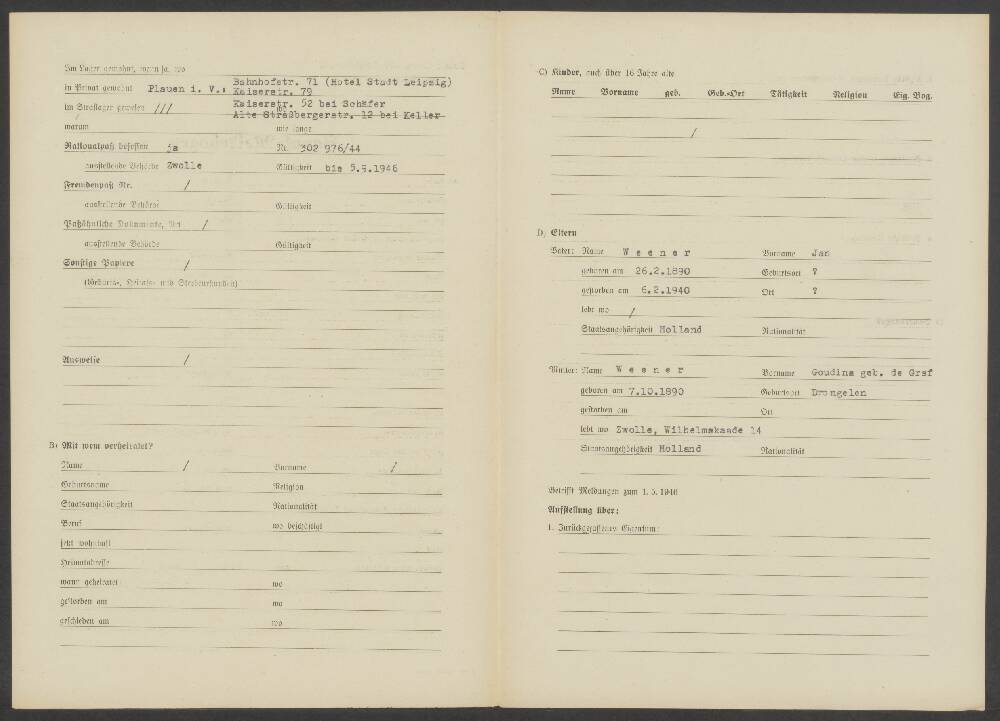 Im Lager gewohnt, wenn ja, wo
in Privat gewohnt Plauen i. V.: Bahnhofstr. 71 (Hotel Stadt Leipzig)
Kaiserstr. 79
im Straflager gewesen /// Kaiserstr. 52 bei Schäfer
Alte Straßbergerstr. 12 bei Keller
warum wie lange
Nationalpaß besessen ja Nr. 302 976/44
ausstellende Behörde Zwolle Gültigkeit bis 5.9.1946
Fremdenpaß Nr. /
ausstellende Behörde Gültigkeit
Paßähnliche Dokumente, Nr. /
ausstellende Behörde Gültigkeit
Sonstige Papiere /
(Geburts-, Heirats- und Sterbeurkunden)
Ausweise /
B) Mit wem verheiratet?
Name / Vorname /
Geburtsname Religion
Staatsangehörigkeit Nationalität
Beruf wo beschäftigt
jetzt wohnhaft
Heimatadresse
wann geheiratet wo
gestorben am wo
geschieden am wo
C) Kinder, auch über 16 Jahre alte
Name Vorname geb. Geb.-Ort Tätigkeit Religion Eig. Bog.
/
D) Eltern
Vater: Name Weener Vorname Jan
geboren am 26.2.1890 Geburtsort ?
gestorben am 6.2.1940 Ort ?
lebt wo /
Staatsangehörigkeit Holland Nationalität
Mutter: Name Weener Vorname Goudina geb. de Graf
geboren am 7.10.1890 Geburtsort Drongelen
gestorben am Ort
lebt wo Zwolle, Wilhelmskaade 14
Staatsangehörigkeit Holland Nationalität
Betrifft Meldungen zum 1. 5. 1946
Aufstellung über:
1. Zurückgelassenes Eigentum: